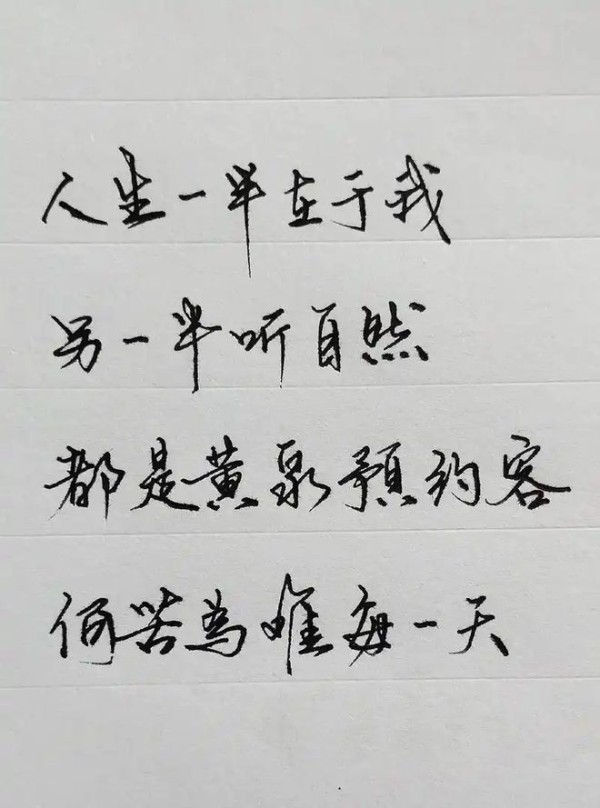 人生一半在于我
另一半听自然
都是黄泉预约客
何苦為难每一天